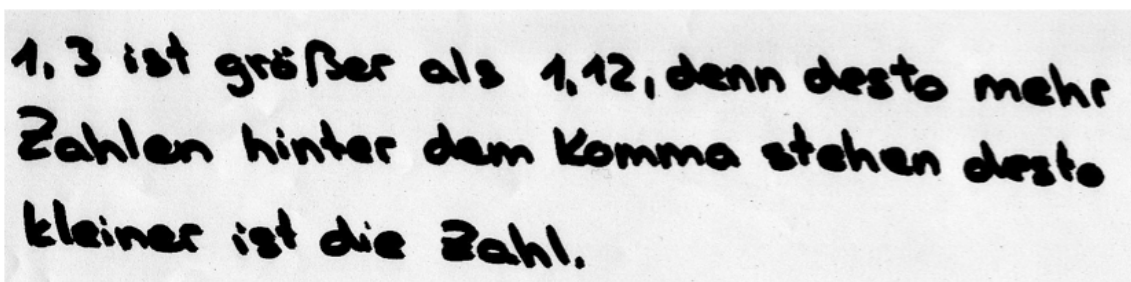 1,3 ist größer als 1,12, denn desto mehr
Zahlen hinter dem Komma stehen desto
kleiner ist die Zahl.